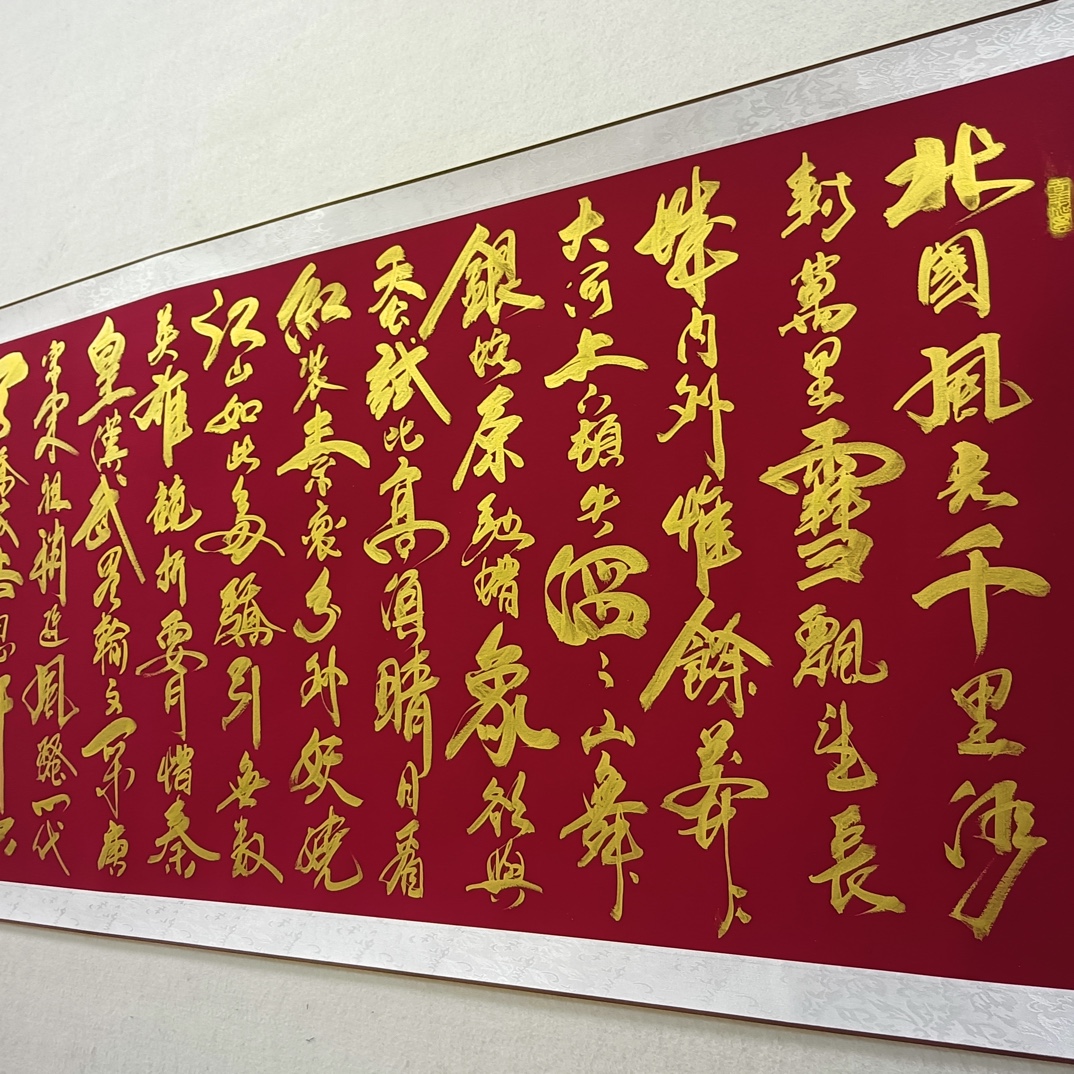 北國風光千里冰
封萬里雪飄望長
城内外惟餘莽々
大河上下頓失滔々山舞
銀蛇原馳蜡象欲與
天公試比高須晴日看
紅装素裹分外妖嬈
江山如此多嬌引無数
英雄競折腰惜秦
皇漢武略輸文采唐
宗宋祖稍遜風騷一代